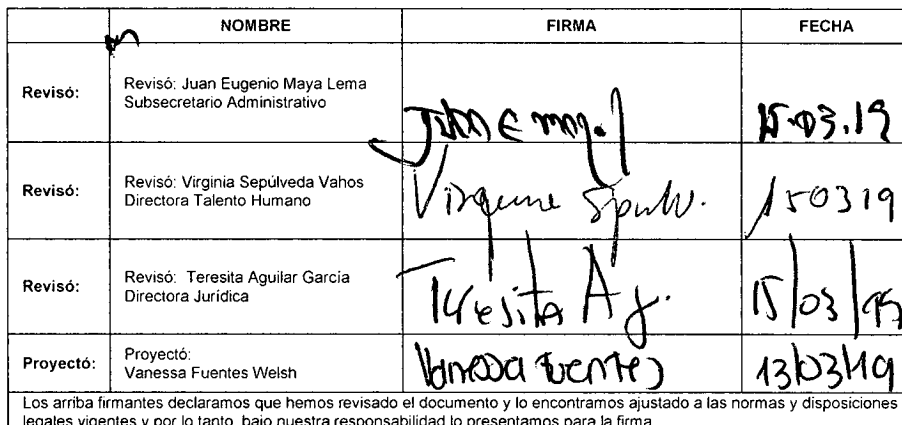 NOMBRE FIRMA FECHA
Revisó: Revisó: Juan Eugenio Maya Lema
Subsecretario Administrativo
Juan E May. 15.03.19
Revisó: Revisó: Virginia Sepúlveda Vahos
Directora Talento Humano
150319
Revisó: Revisó: Teresita Aguilar García
Directora Jurídica
Teresita Ag. 15/03/19
Proyectó: Proyectó:
Vanessa Fuentes Welsh
Vanessa Fuentes 13/03/19
Los arriba firmantes declaramos que hemos revisado el documento y lo encontramos ajustado a las normas y disposiciones
legales vigentes y por lo tanto, bajo nuestra responsabilidad lo presentamos para la firma.